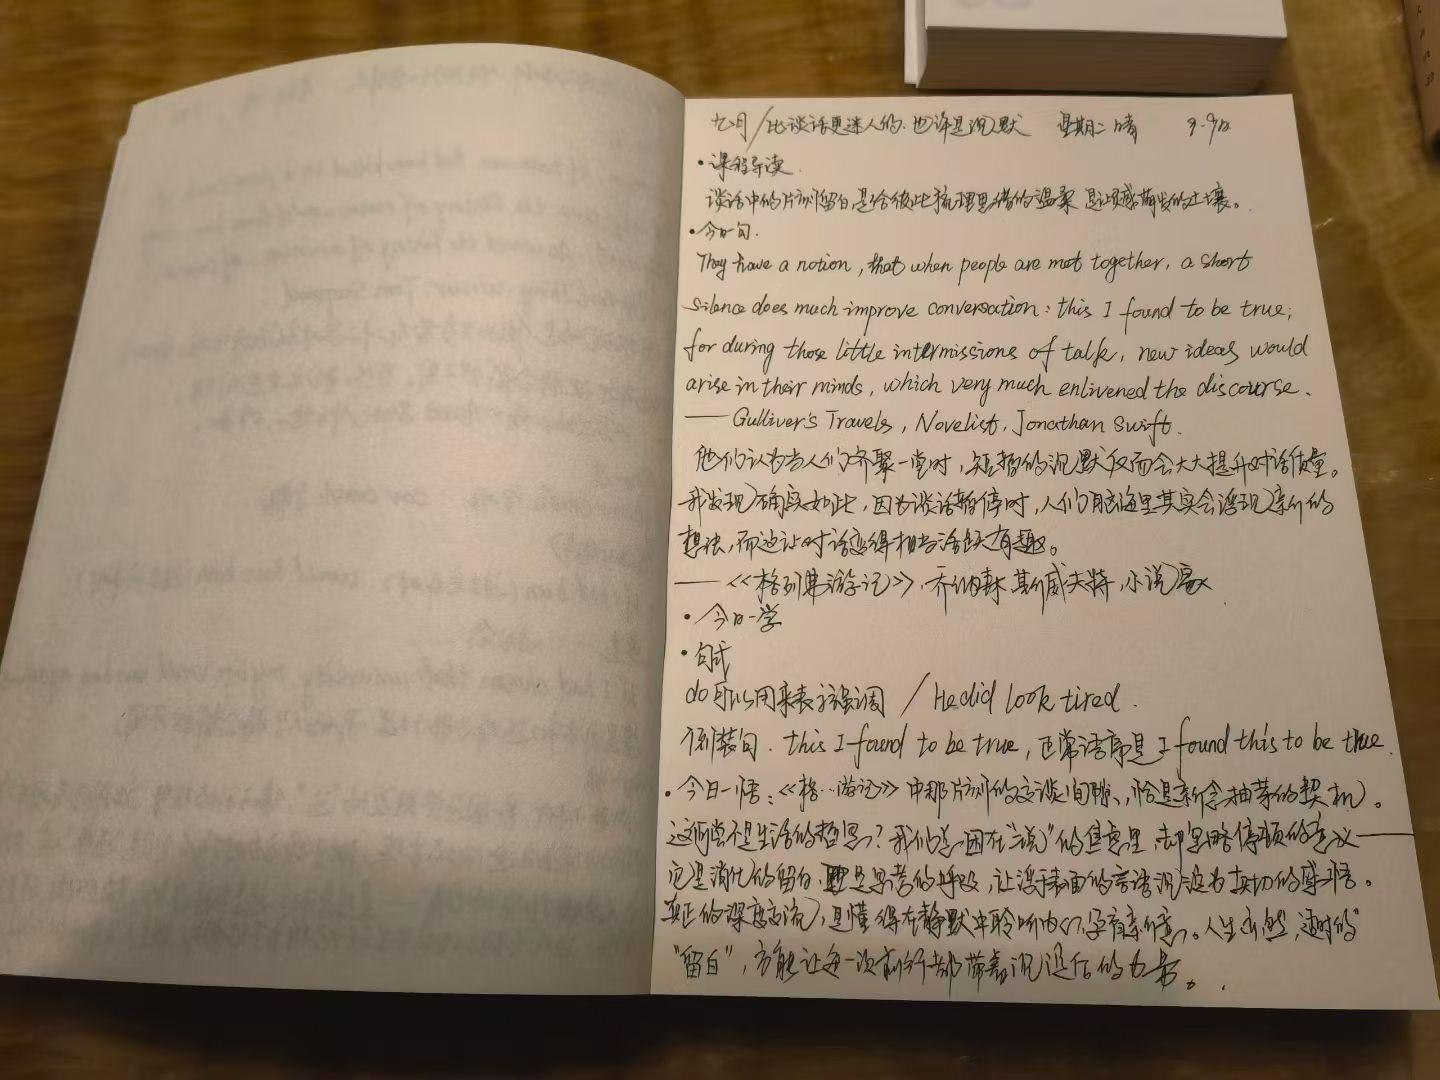 九月/比谈话更迷人的.也许是沉默 星期二晴 9.9日
•课程导读.
谈话中的片刻留白,是给彼此梳理思绪的温柔 是灵感萌发的土壤。
•今日一句.
They have a notion, that when people are met together, a short
silence does much improve conversation: this I found to be true;
for during those little intermissions of talk, new ideas would
arise in their minds, which very much enlivened the discourse.
—— Gulliver's Travels, Novelist, Jonathan Swift.
他们认为当人们齐聚一堂时,短暂的沉默反而会大大提升对话质量。
我发现确实如此,因为谈话暂停时,人们脑海里其实会浮现新的
想法,而这让对话变得相当活跃有趣。
——《格列弗游记》,乔纳森.斯威夫特,小说家
•今日一学
•句式
do可以用来表示强调 / He did look tired.
倒装句. this I found to be true, 正常语序是 I found this to be true.
•今日一悟:《格…游记》中那片刻的交谈间隙,恰是新念抽芽的契机。
这何尝不是生活的哲思?我们总困在"说"的焦虑里,却忽略停顿的意义——
它是消化的留白,更是思考的呼吸,让浮于表面的言语沉淀为真切的感悟。
真正的深度交流,是懂得在静默中聆听内心,孕育新意。人生亦然,适时的
"留白",方能让每一次前行都带着沉淀后的力量。